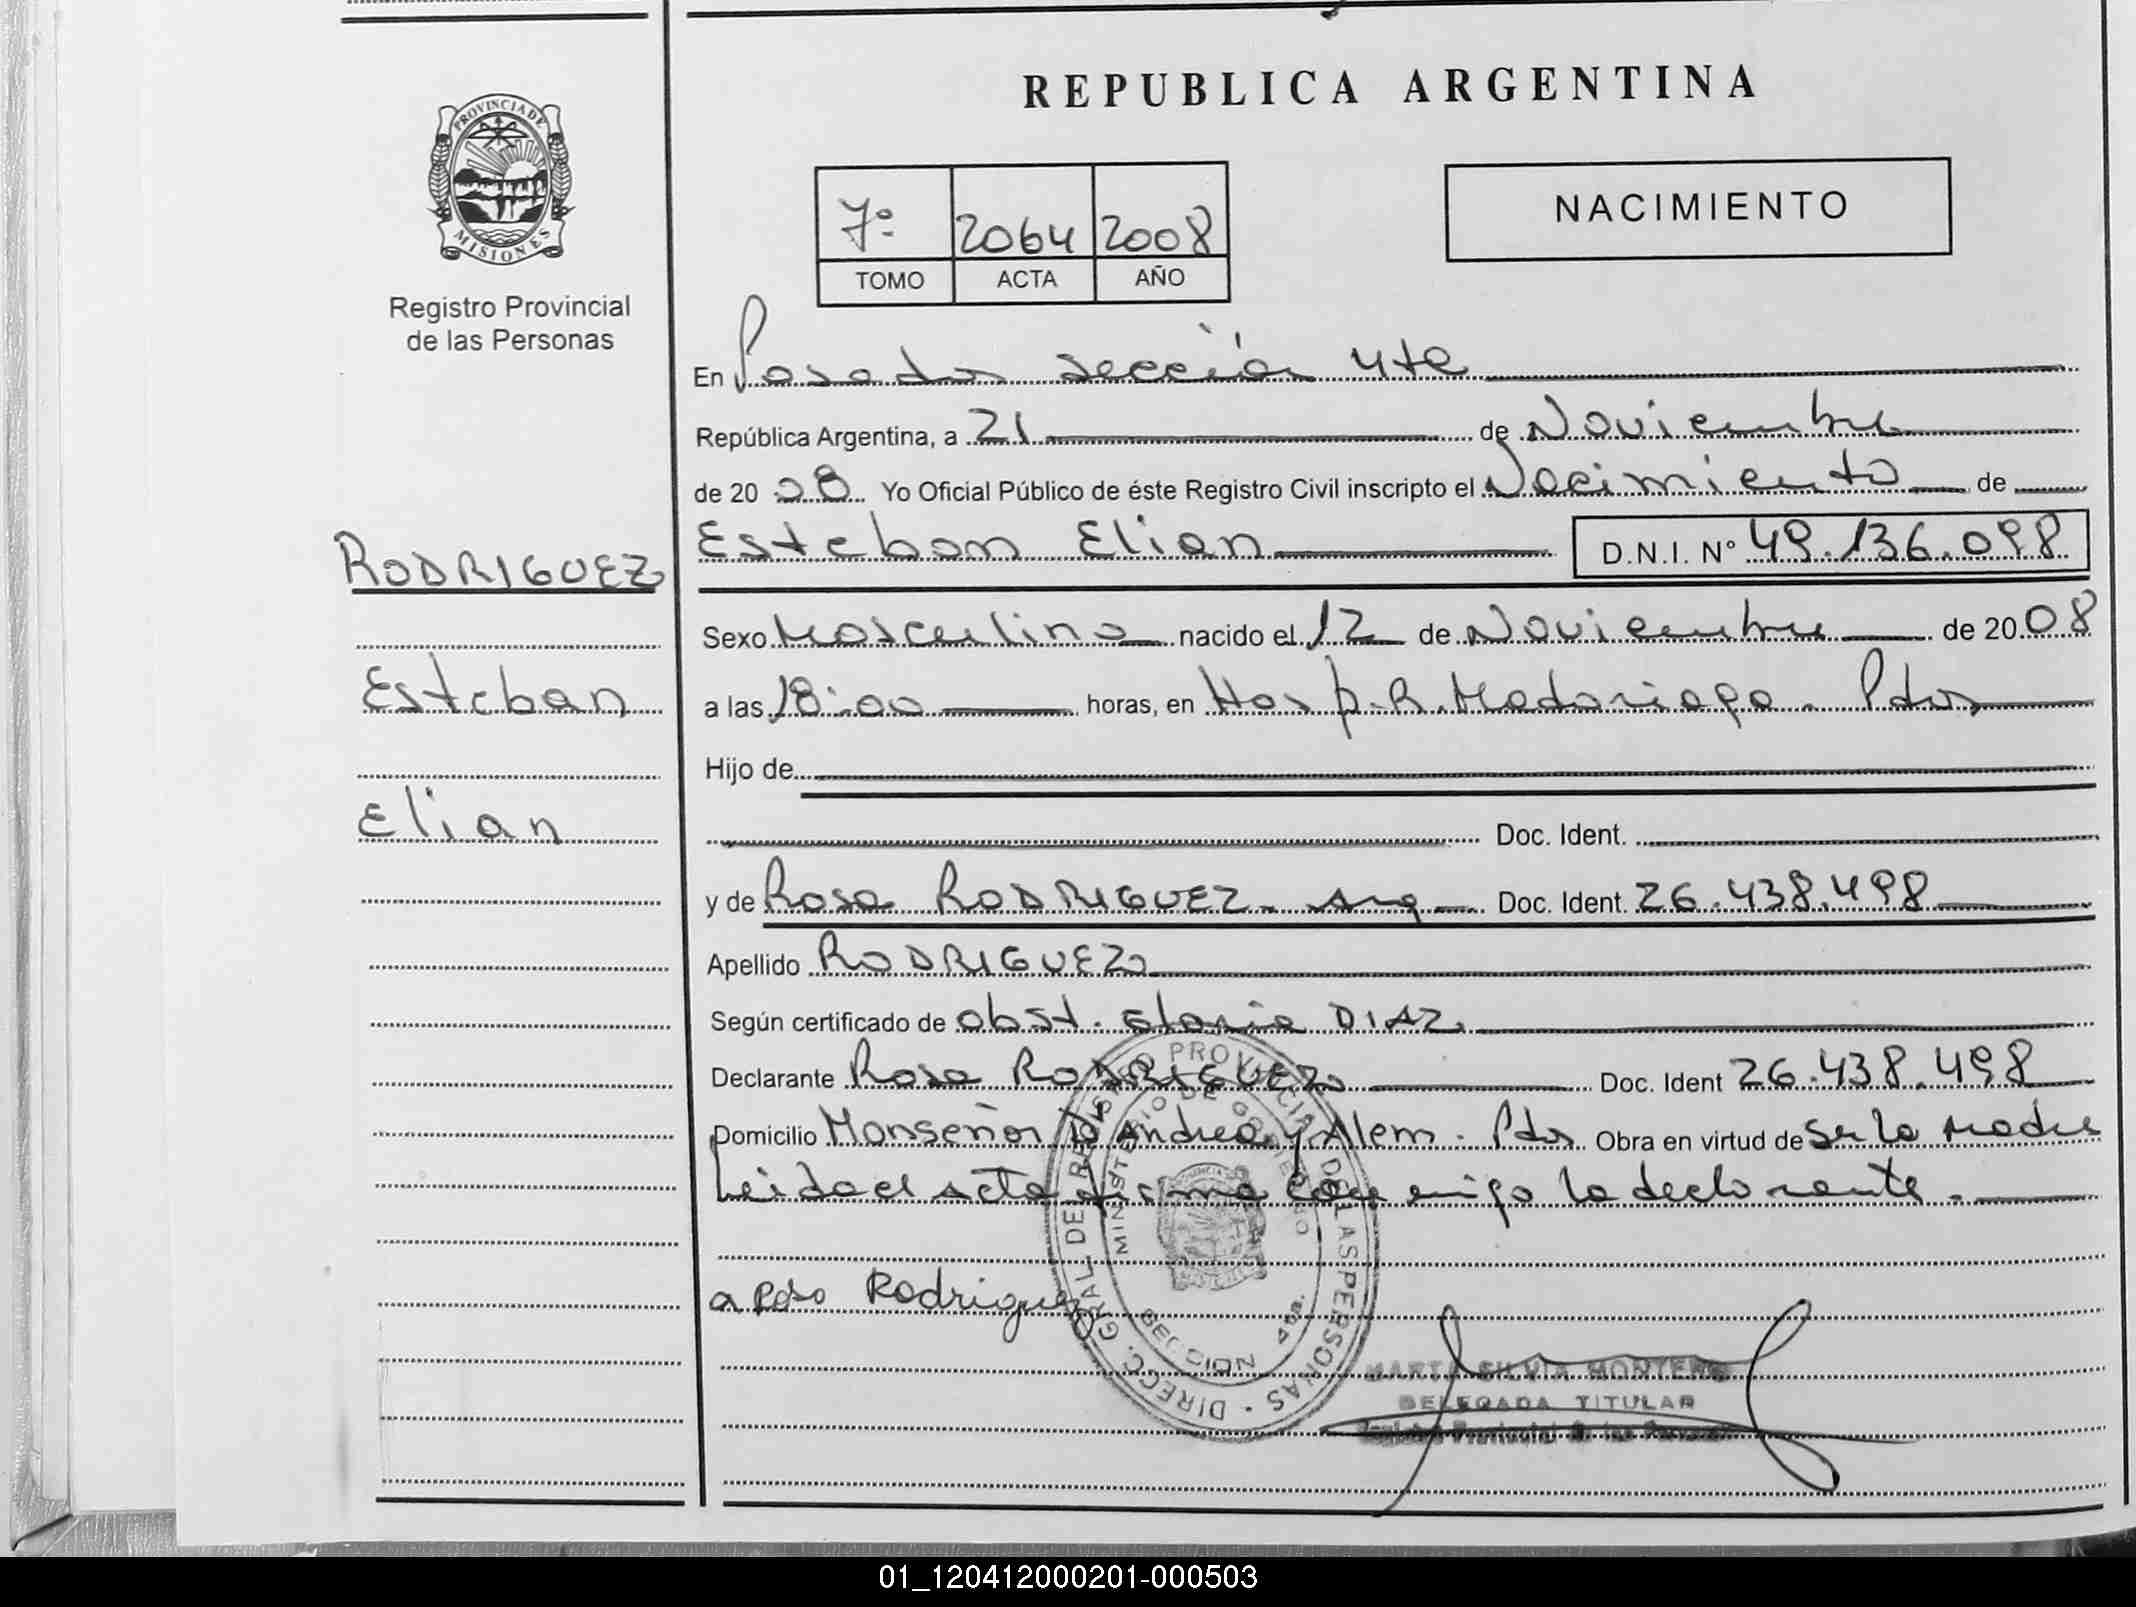 REPUBLICA ARGENTINA
PROVINCIA DE
MISIONES
Registro Provincial
de las Personas
7º 2064 2008
TOMO ACTA AÑO
NACIMIENTO
En Posadas sección 4te
República Argentina, a 21 de Noviembre
de 20 08 Yo Oficial Público de éste Registro Civil inscripto el Nacimiento de
RODRIGUEZ
Esteban
Elian
Esteban Elian D.N.I. Nº 49.136.098
Sexo Masculino nacido el 12 de Noviembre de 20 08
a las 18:00 horas, en Hosp. R. Madariaga. Pdas
Hijo de
Doc. Ident.
y de Rosa RODRIGUEZ - Arg - Doc. Ident. 26.438.498
Apellido RODRIGUEZ
Según certificado de obst. Gloria DIAZ.
Declarante Rosa RODRIGUEZ Doc. Ident 26.438.498
Domicilio Monseñor D'Andrea y Alem. Pdas Obra en virtud de ser la madre
Leida el acta firma conmigo la declarante.
Rodriguez
DIRECC. GRAL DE REGISTRO PROVINCIAL DE LAS PERSONAS
MINISTERIO DE GOBIERNO
MARTA SILVIA MONTERO
DELEGADA TITULAR
Registro Provincial de las Personas
01_120412000201-000503